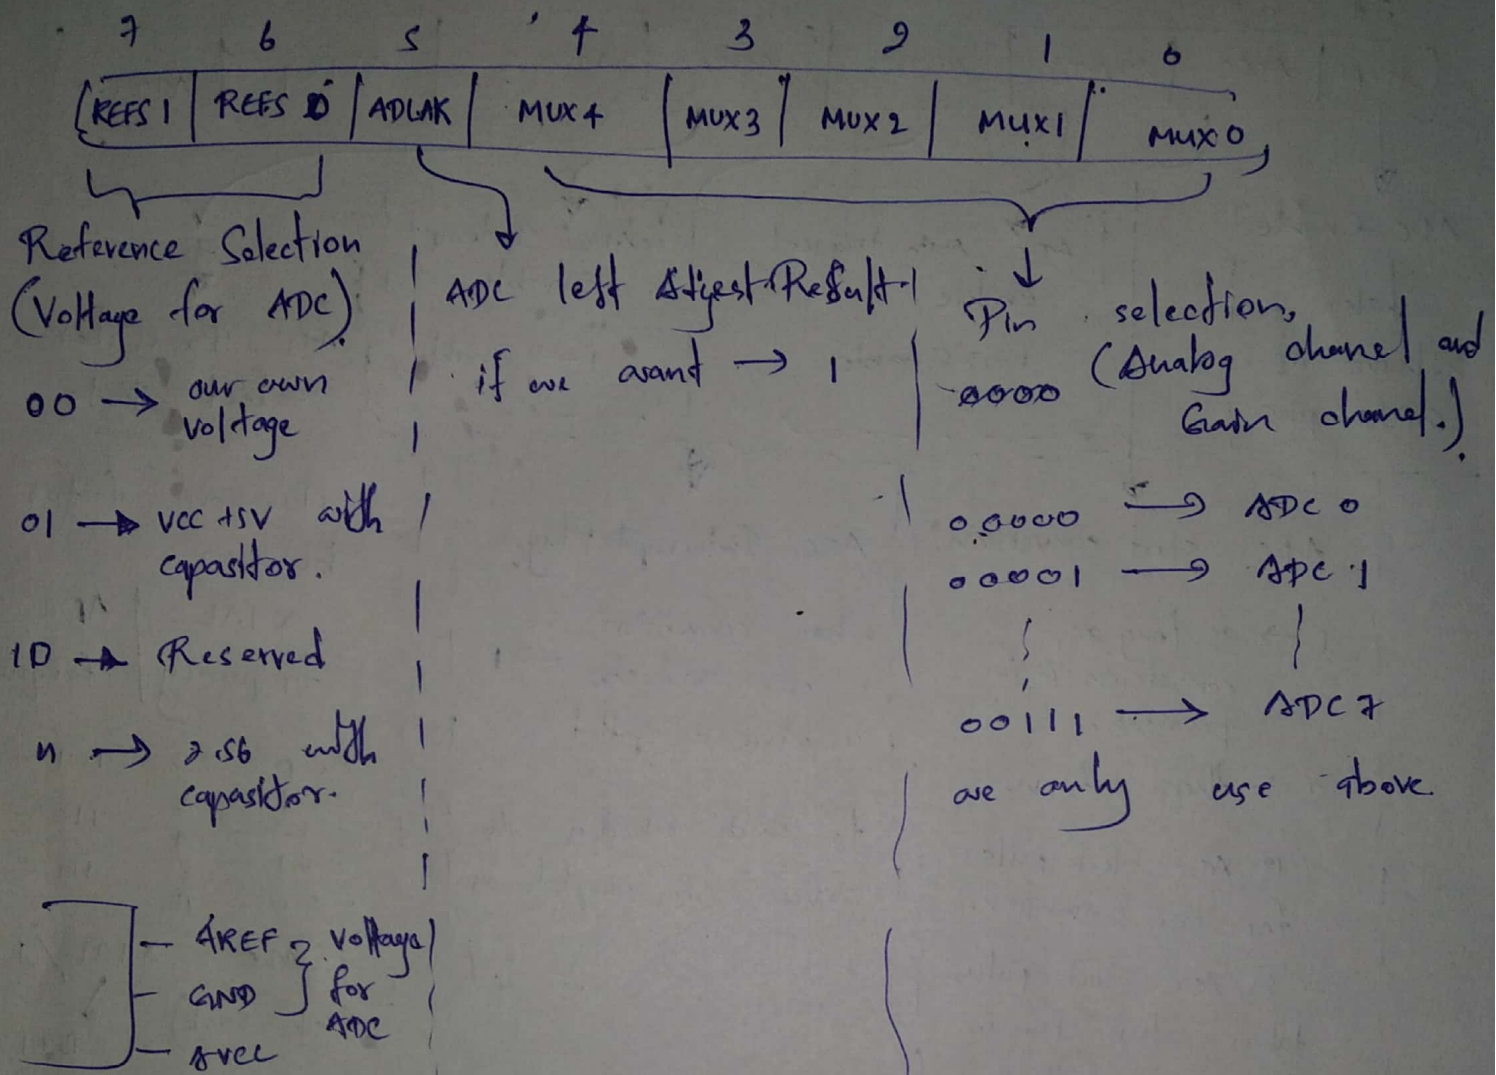 7 6 5 4 3 2 1 0
REFS 1 REFS 0 ADLAR MUX 4 MUX 3 MUX 2 MUX 1 MUX 0
Reference Selection
(Voltage for ADC).
00 → our own
voltage
01 → VCC +5V with
capasitor.
10 → Reserved
11 → 2.56 with
capasitor.
AREF } voltage
GND for
ADC
AVCC
ADC left Adjest Result
if we want → 1
Pin selection,
(Analog chanel and
Gain chanel.).
00000 → ADC 0
00001 → ADC 1
00111 → ADC 7
we only use above.